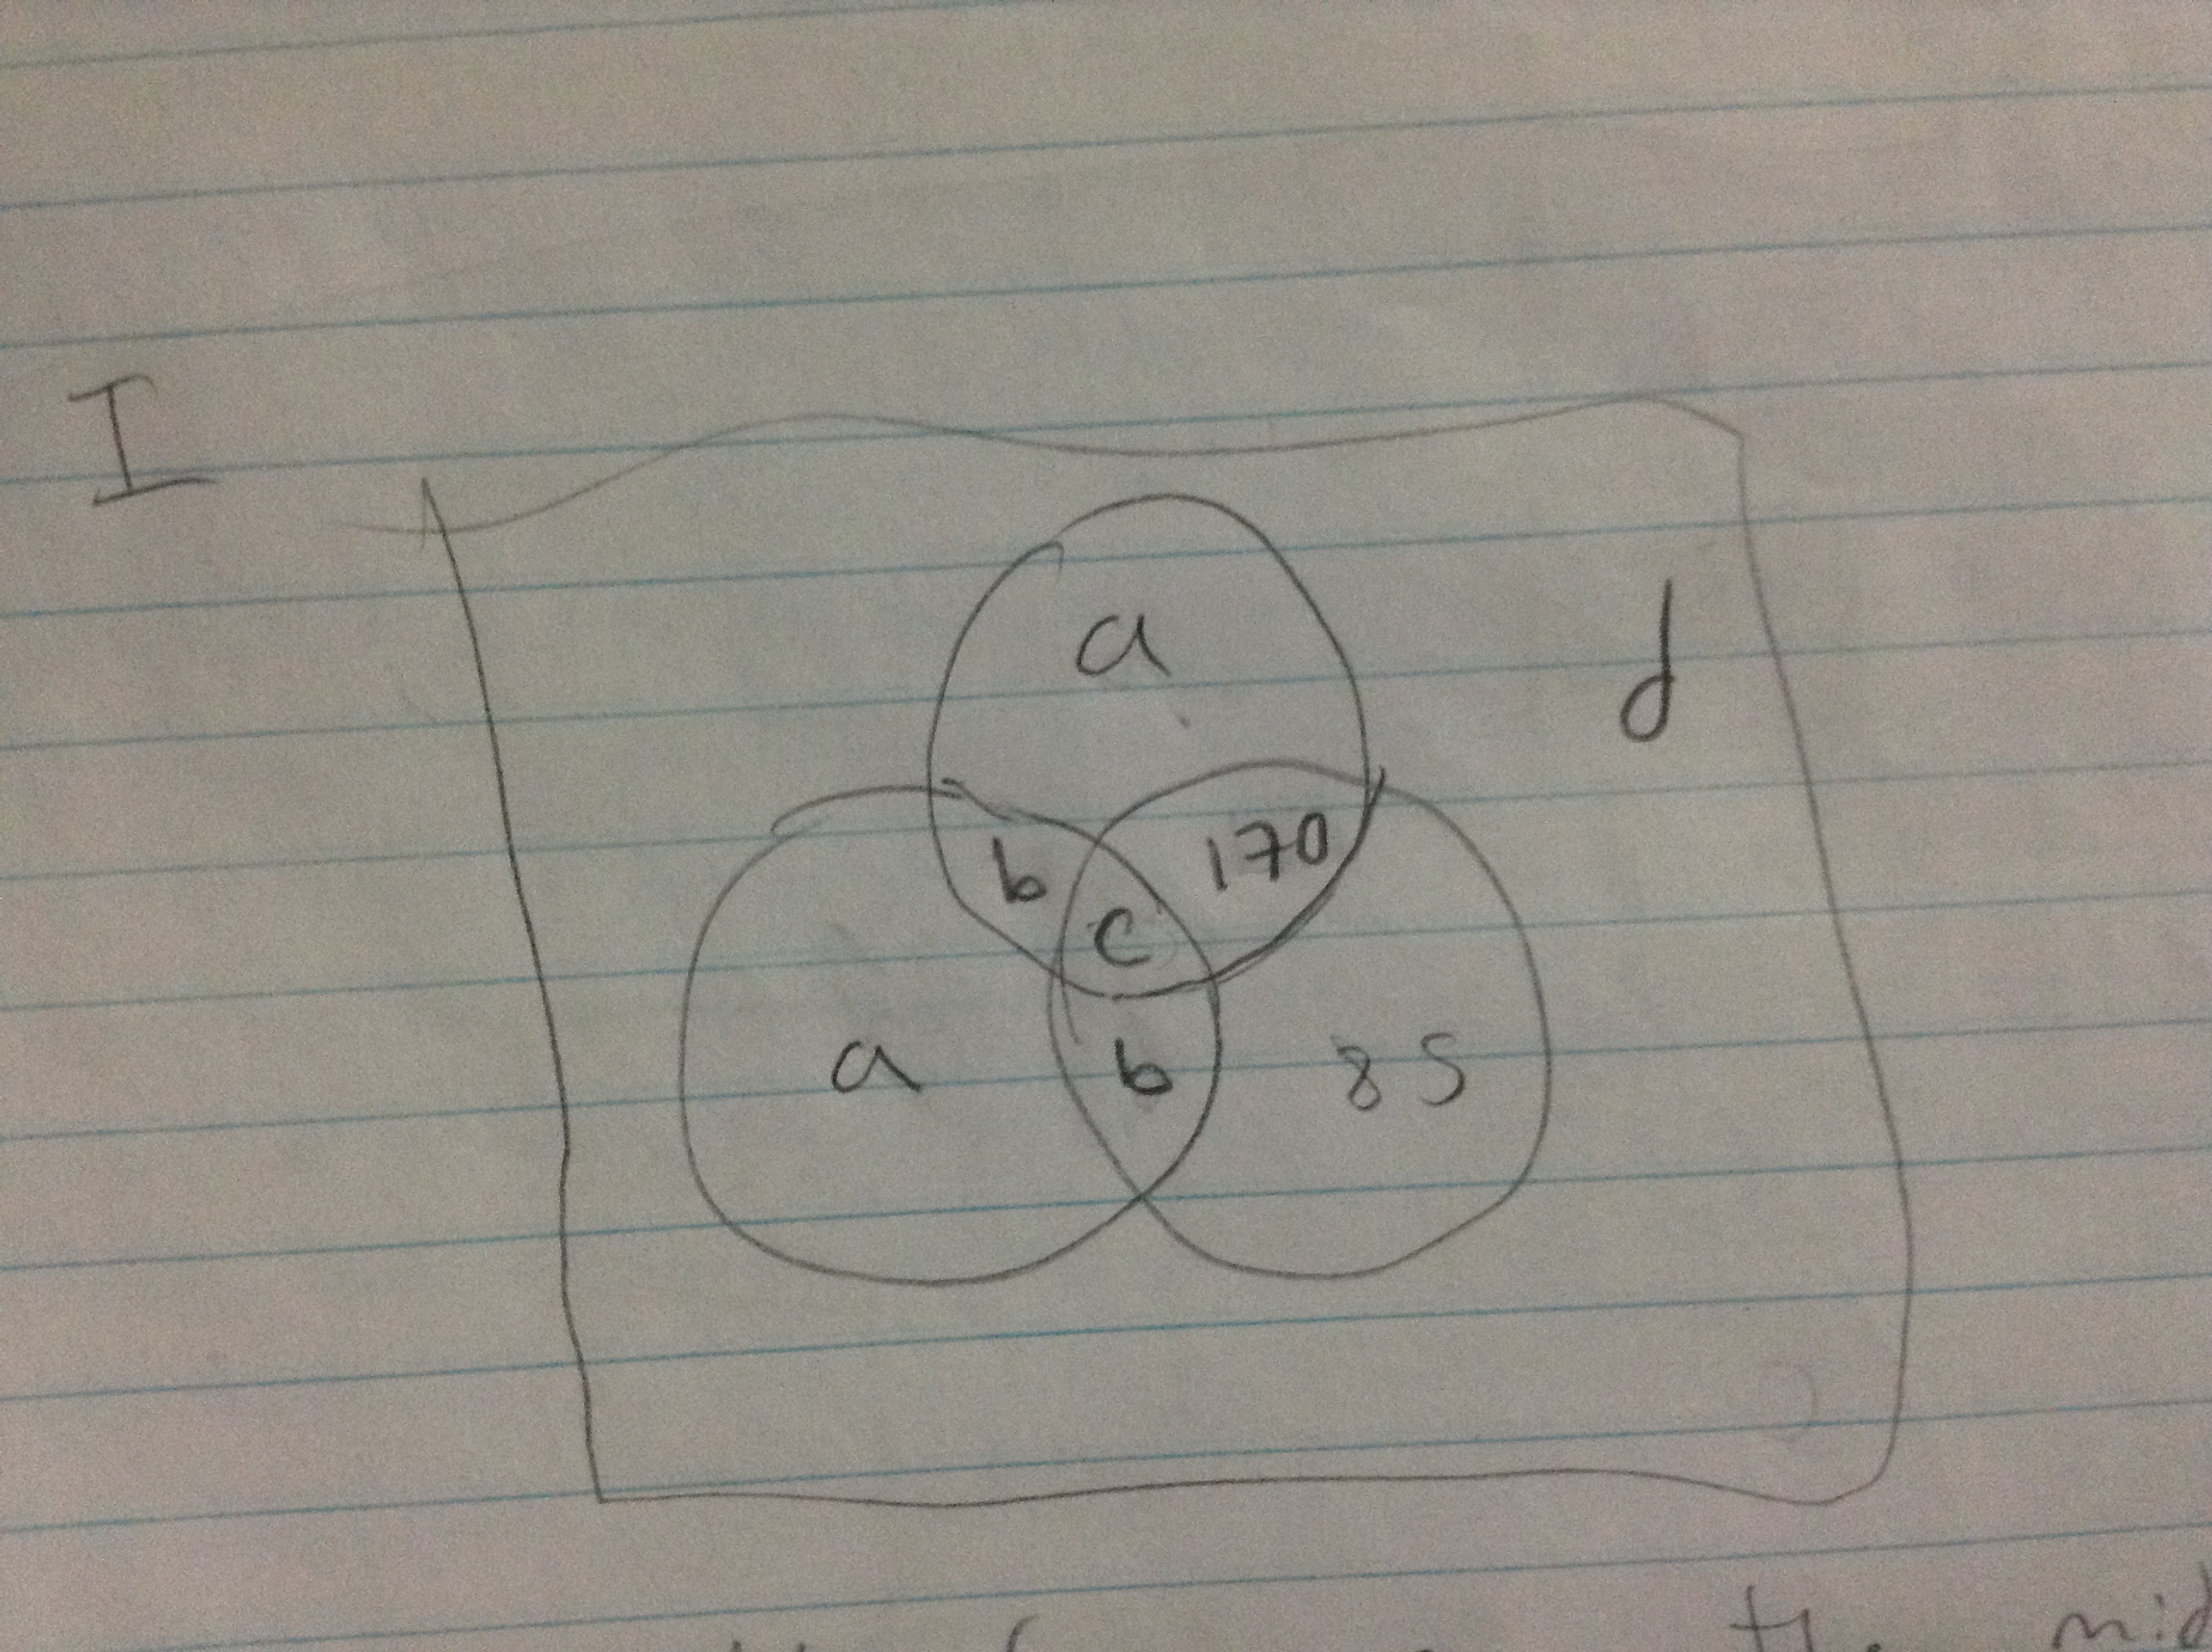 I
a
d
b 170
c
a b 85
the mid